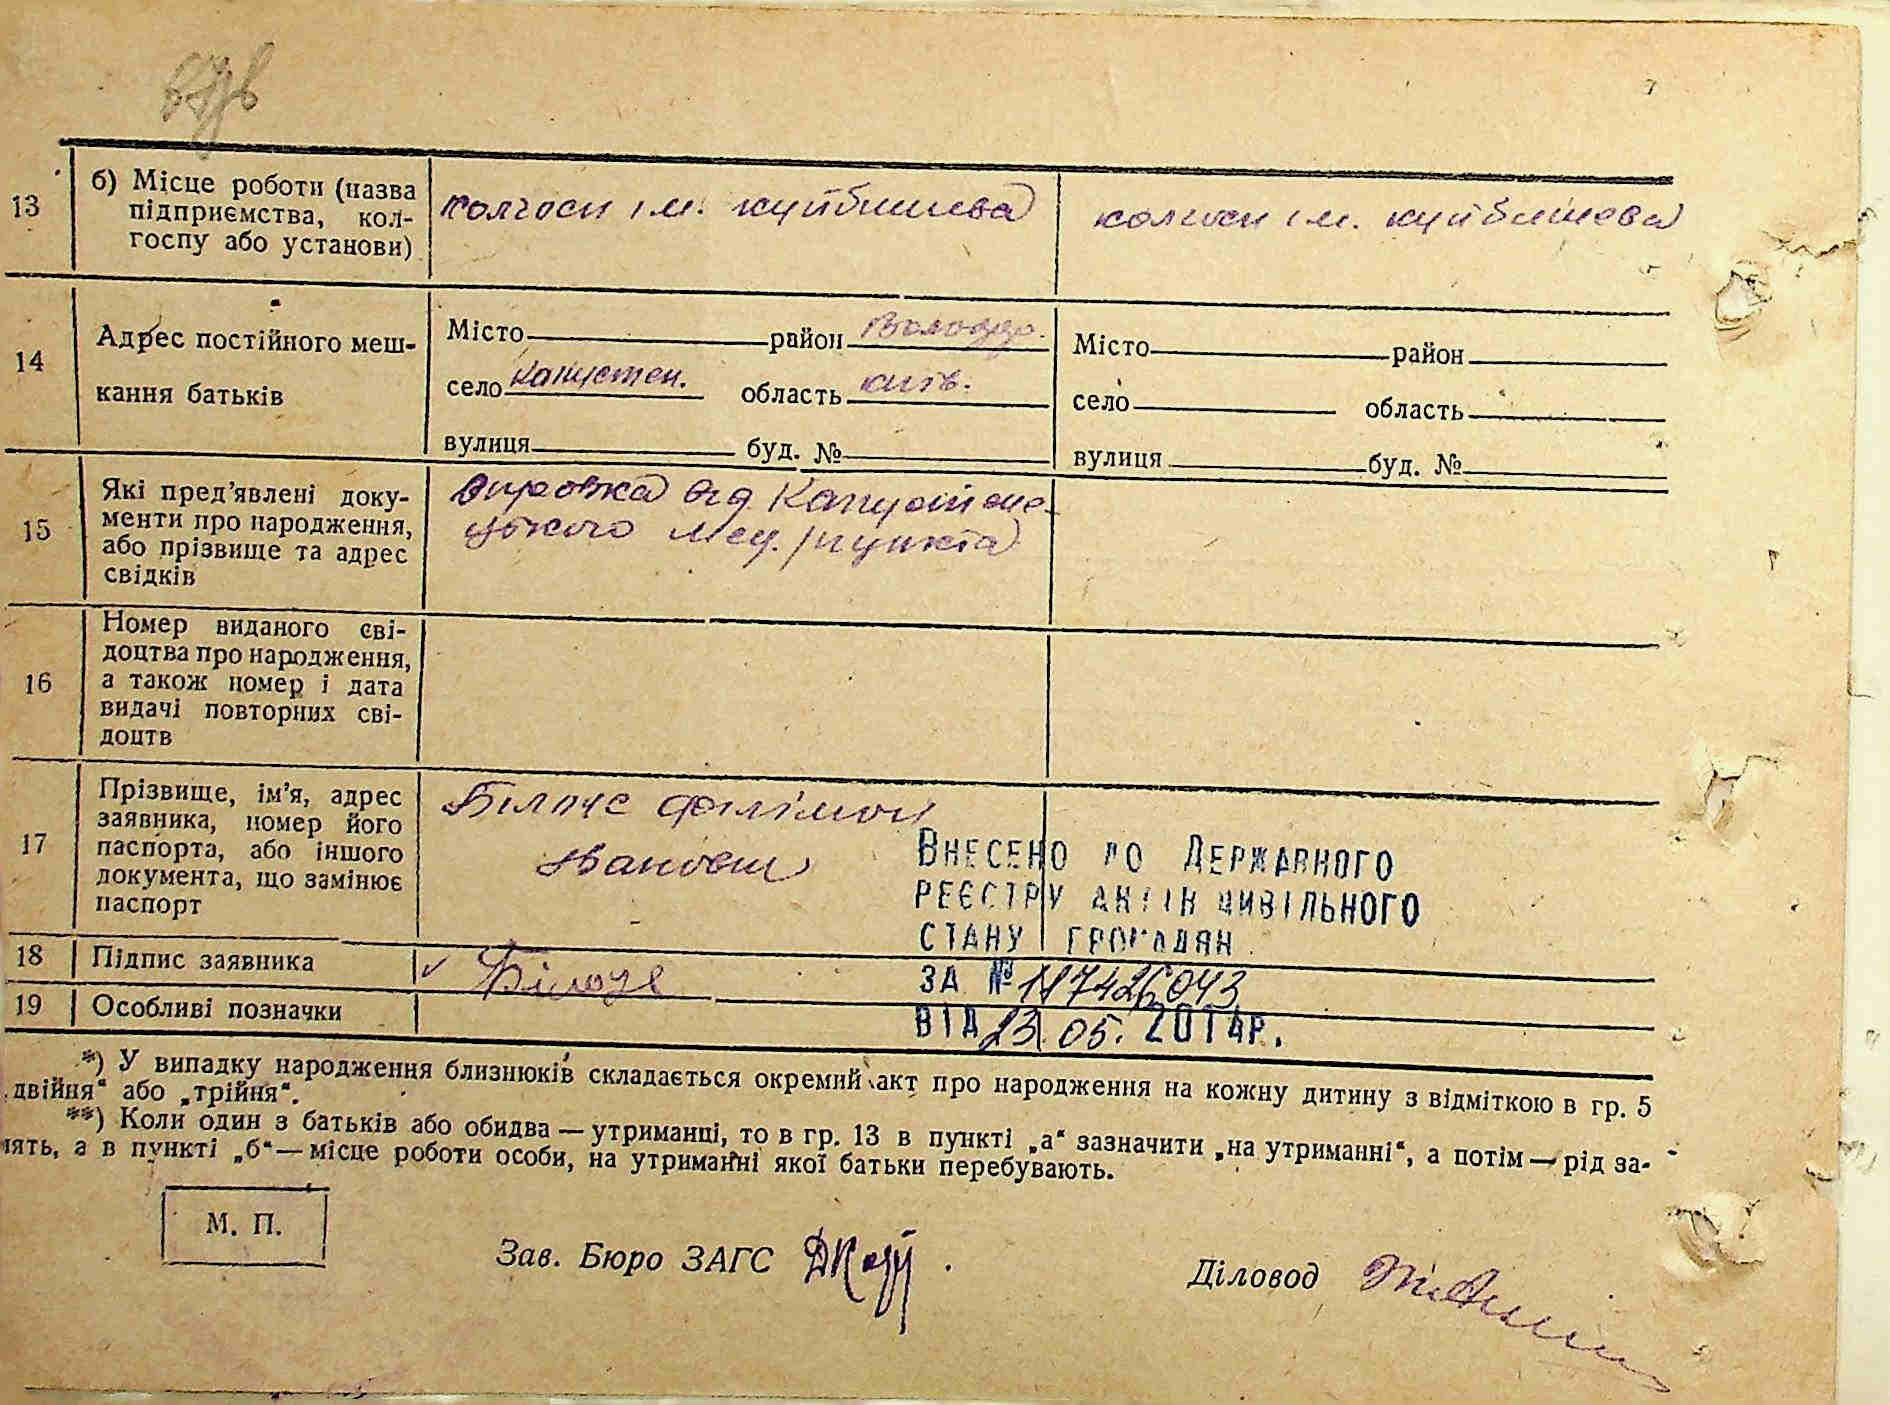 13
б) Місце роботи (назва
підприємства, кол-
госпу або установи)
колгосп ім. куйбишева
колгосп ім. куйбишева
14
Адрес постійного меш-
кання батьків
Місто район Володар.
село Капустен. область київ.
вулиця буд. №
Місто район
село область
вулиця буд. №
15
Які пред'явлені доку-
менти про народження,
або прізвище та адрес
свідків
справка від Капустине-
цького мед. пункта
16
Номер виданого сві-
доцтва про народження,
а також номер і дата
видачі повторних сві-
доцтв
17
Прізвище, ім'я, адрес
заявника, номер його
паспорта, або іншого
документа, що замінює
паспорт
Білоус Філімон
Іванович
ВНЕСЕНО ДО ДЕРЖАВНОГО
РЕЄСТРУ АКТІВ ЦИВІЛЬНОГО
СТАНУ ГРОМАДЯН
ЗА № 117426043
ВІД 23.05.2014Р.
18 Підпис заявника
Білоус
19 Особливі позначки
*) У випадку народження близнюків складається окремий акт про народження на кожну дитину з відміткою в гр. 5
„двійня“ або „трійня“.
**) Коли один з батьків або обидва — утриманці, то в гр. 13 в пункті „а“ зазначити „на утриманні“, а потім — рід за-
нять, а в пункті „б“ — місце роботи особи, на утриманні якої батьки перебувають.
М. П.
Зав. Бюро ЗАГС
Діловод